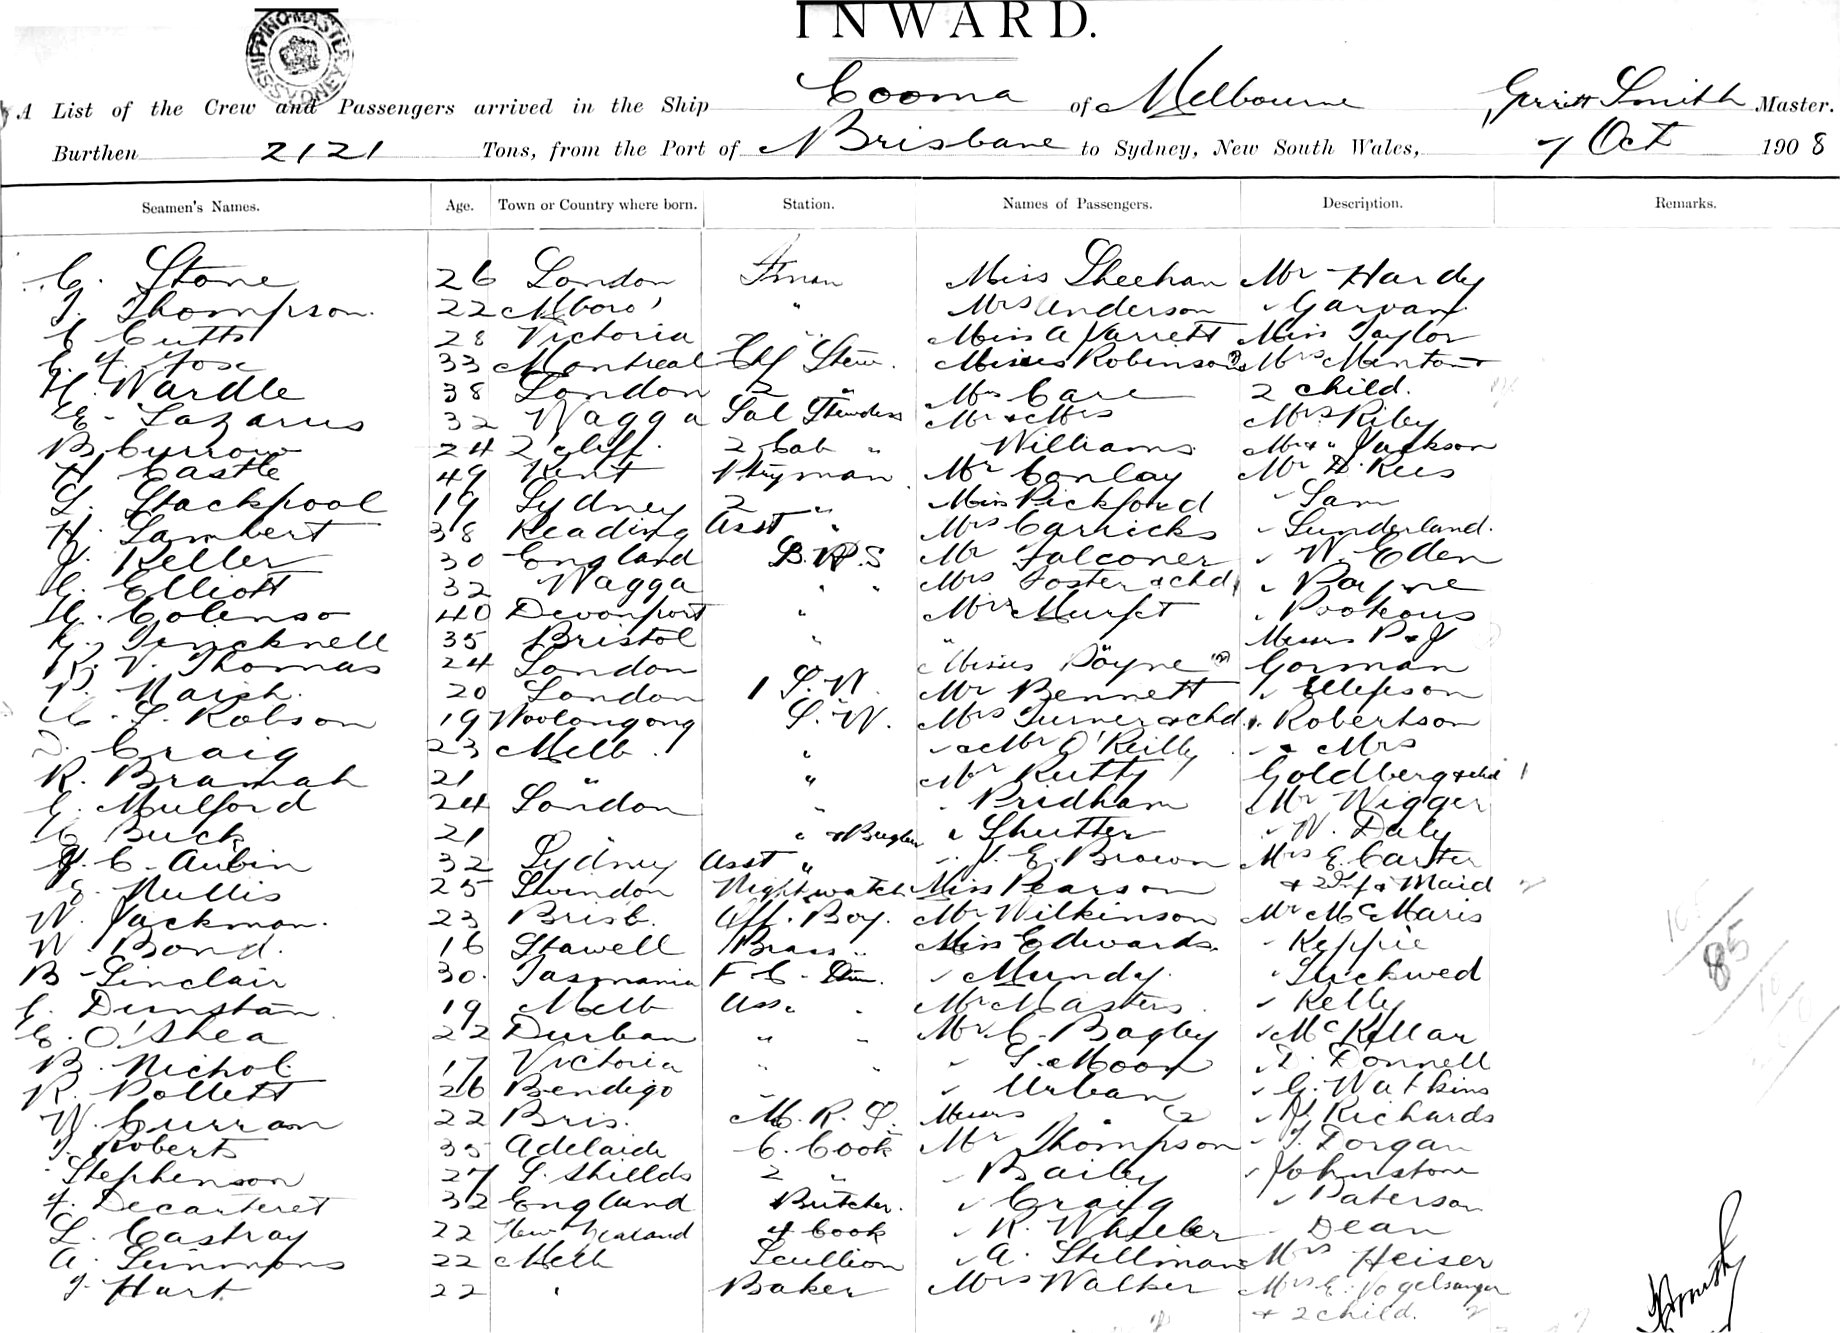 INWARD.
SHIPPING MASTER SYDNEY
A List of the Crew and Passengers arrived in the Ship Cooma of Melbourne Gerritt Smith Master.
Burthen 2121 Tons, from the Port of Brisbane to Sydney, New South Wales, 7 Oct 1908
Seamen's Names. Age. Town or Country where born. Station. Names of Passengers. Description. Remarks.
C. Stone 26 London Fman Miss Sheehan Mr Hardy
J. Thompson. 22 Mboro' " Mrs Anderson " Garvan
C Cutts 28 Victoria " Miss A Jarrett Miss Taylor
33 Montreal Chf Stew. Misses Robinson (2) Mrs Minton &
H. Wardle 38 London 2 " Mrs Care 2 child.
E. Lazarus 32 Wagga Sal Stewdess Mr & Mrs Mrs Riley
B Currow 24 2 Cab " Williams Mr & " Jackson
H Castle 49 Kent Ptryman Mr Conlay Mr D. Rees
L. Stackpool 19 Sydney 2 " Miss Pickford " Sam
H. Lambert 38 Reading Asst " Mrs Carricks " Sunderland.
J. Keller 30 England B.R.S Mr Falconer " W. Eden
C. Elliott 32 Wagga " " Mrs Foster & chd 1 " Payne
H. Colenso 40 Devonport " Mrs Murfet
G. Trucknell 35 Bristol " " Messrs P & J
R. V. Thomas 24 London " Misses Payne (2) Gorman
P. March. 20 London 1 S. W. Mr Bennett " Ellepson
C. S. Robson 19 Woolongong S. W. Mrs Turner & chd 1. " Robertson
Craig 23 Melb. " " & Mr O'Reilly " & Mrs
R. Bramah 21 " " Mr Rutty Goldberg & chd 1
C. Mulford 24 London " " Pridham Mr Wigger
C Buck 21 " & Bugler " Shutter " W. Daly
J. C. Aubin 32 Sydney Asst " " J. E. Brown Mrs E. Carter
E. Nullis 25 Swindon Nightwatch Miss Pearson & 2 Inf & Maid
W. Jackman. 23 Brisb. Off. Boy. Mr Wilkinson Mr McMaris
W. Bond. 16 Stawell Brass " Miss Edwards " Keppie
B Sinclair 30. Tasmania F C. Stew. " Munday. " Luckwed
C. Dunstan. 19 Melb Ass. " Mr Masters. " Kelly
E. O'Shea 22 Durban " " Mr C. Bagley " McKellar
B. Nichol 17 Victoria " " " S. Moon " Donnell
R. Pollett 26 Bendigo " " " Urban " G. Watkins
W. Curran 22 Bris. M. R. S. Messrs " (2 " J. Richards
J. Roberts 35 Adelaide C. Cook Mr Thompson " J. Dorgan
Stephenson 27 S. Shillds 2 " " Baily " Johnstone
F. Decarteret 32 England Butcher. " Craig " Paterson
L. Castray 22 New Zealand 4 Cook " R. Wheeler " Dean
A. Simmons 22 Melb Scullion " A. Stillman Mrs Heiser
J. Hart. 22 " Baker Mrs Walker Mrs E. Vogelsanger
& 2 child.
85